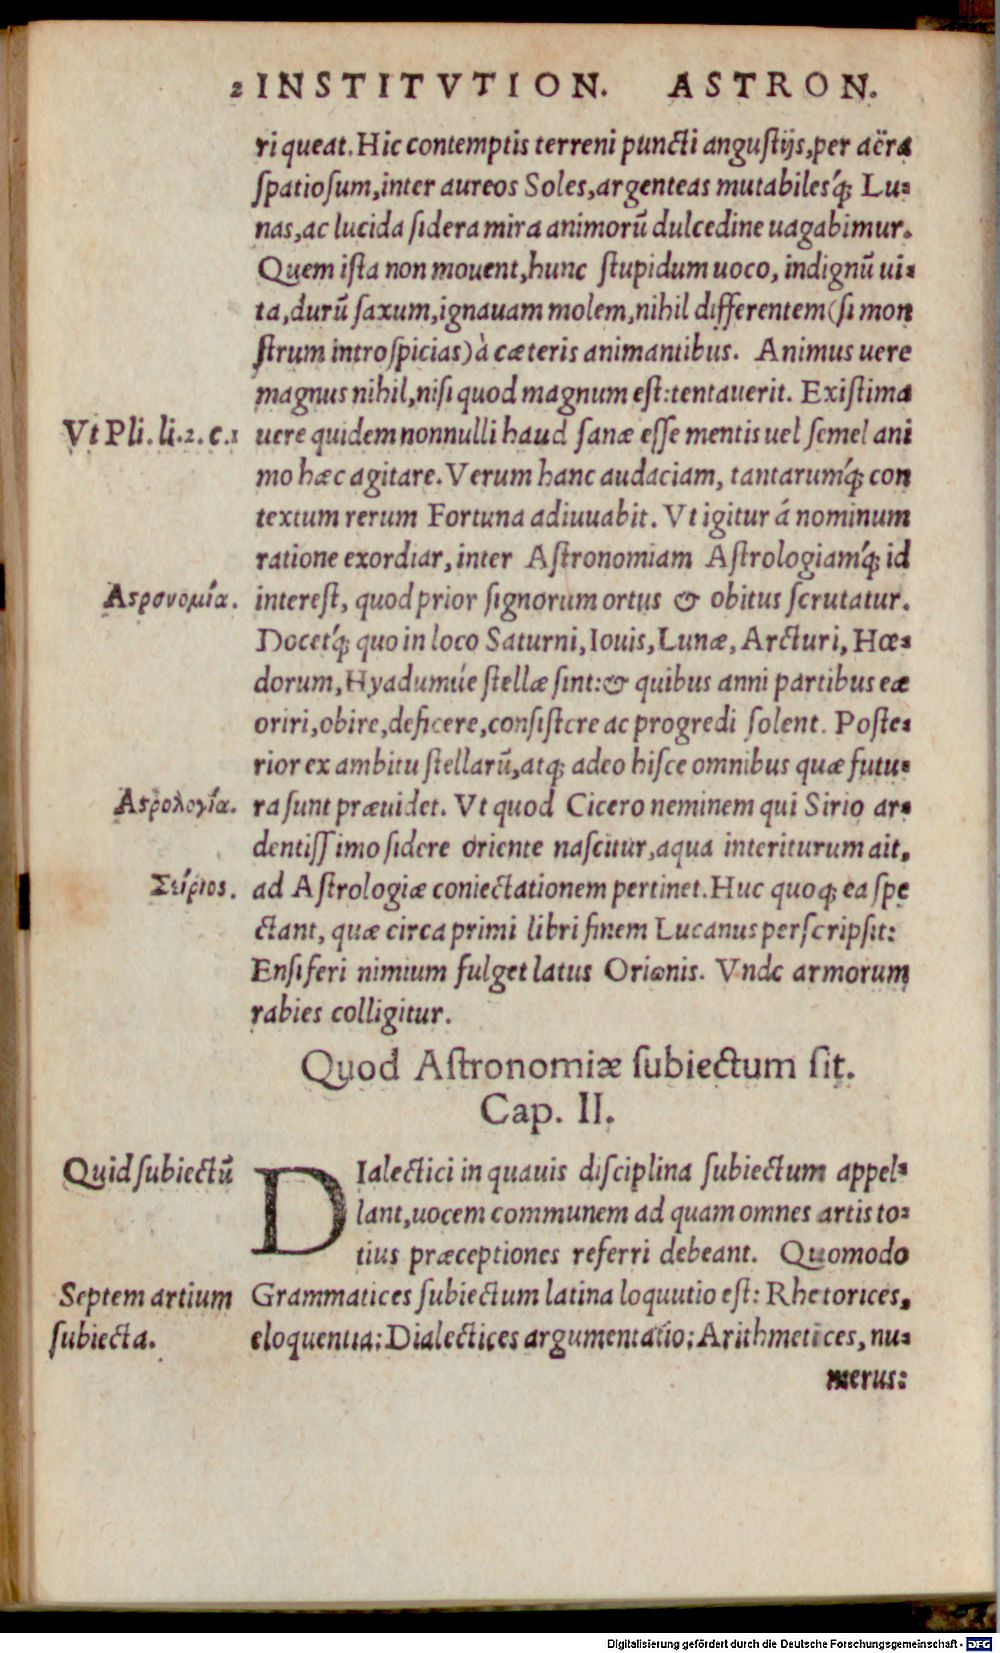 2 INSTITVTION. ASTRON.
ri queat. Hic contemptis terreni puncti angustijs, per aëra
spatiosum, inter aureos Soles, argenteas mutabilesq́; Lu-
nas, ac lucida sidera mira animorũ dulcedine uagabimur.
Quem ista non mouent, hunc stupidum uoco, indignũ ui-
ta, durũ saxum, ignauam molem, nihil differentem (si mon
strum introspicias) à cæteris animantibus. Animus uere
magnus nihil, nisi quod magnum est: tentauerit. Existima
Vt Pli. li. 2. c. 1
uere quidem nonnulli haud sanæ esse mentis uel semel ani
mo hæc agitare. Verum hanc audaciam, tantarumq́; con
textum rerum Fortuna adiuuabit. Vt igitur á nominum
ratione exordiar, inter Astronomiam Astrologiamq́; id
Ἀςρονομία.
interest, quod prior signorum ortus & obitus scrutatur.
Docetq́; quo in loco Saturni, Iouis, Lunæ, Arcturi, Hœ-
dorum, Hyadumúe stellæ sint: & quibus anni partibus eæ
oriri, obire, deficere, consistere ac progredi solent. Poste-
rior ex ambitu stellarũ, atq; adeo hisce omnibus quæ futu-
Ἀςρολογία.
ra sunt præuidet. Vt quod Cicero neminem qui Sirio ar-
dentissimo sidere oriente nascitur, aqua interiturum ait,
Σείριος.
ad Astrologiæ coniectationem pertinet. Huc quoq; ea spe
ctant, quæ circa primi libri finem Lucanus perscripsit:
Ensiferi nimium fulget latus Orionis. Vnde armorum
rabies colligitur.
Quod Astronomiæ subiectum sit.
Cap. II.
Quid subiectũ
DIalectici in quauis disciplina subiectum appel-
lant, uocem communem ad quam omnes artis to-
tius præceptiones referri debeant. Quomodo
Septem artium
subiecta.
Grammatices subiectum latina loquutio est: Rhetorices,
eloquentia: Dialectices argumentatio: Arithmetices, nu-
merus:
Digitalisierung gefördert durch die Deutsche Forschungsgemeinschaft - DFG